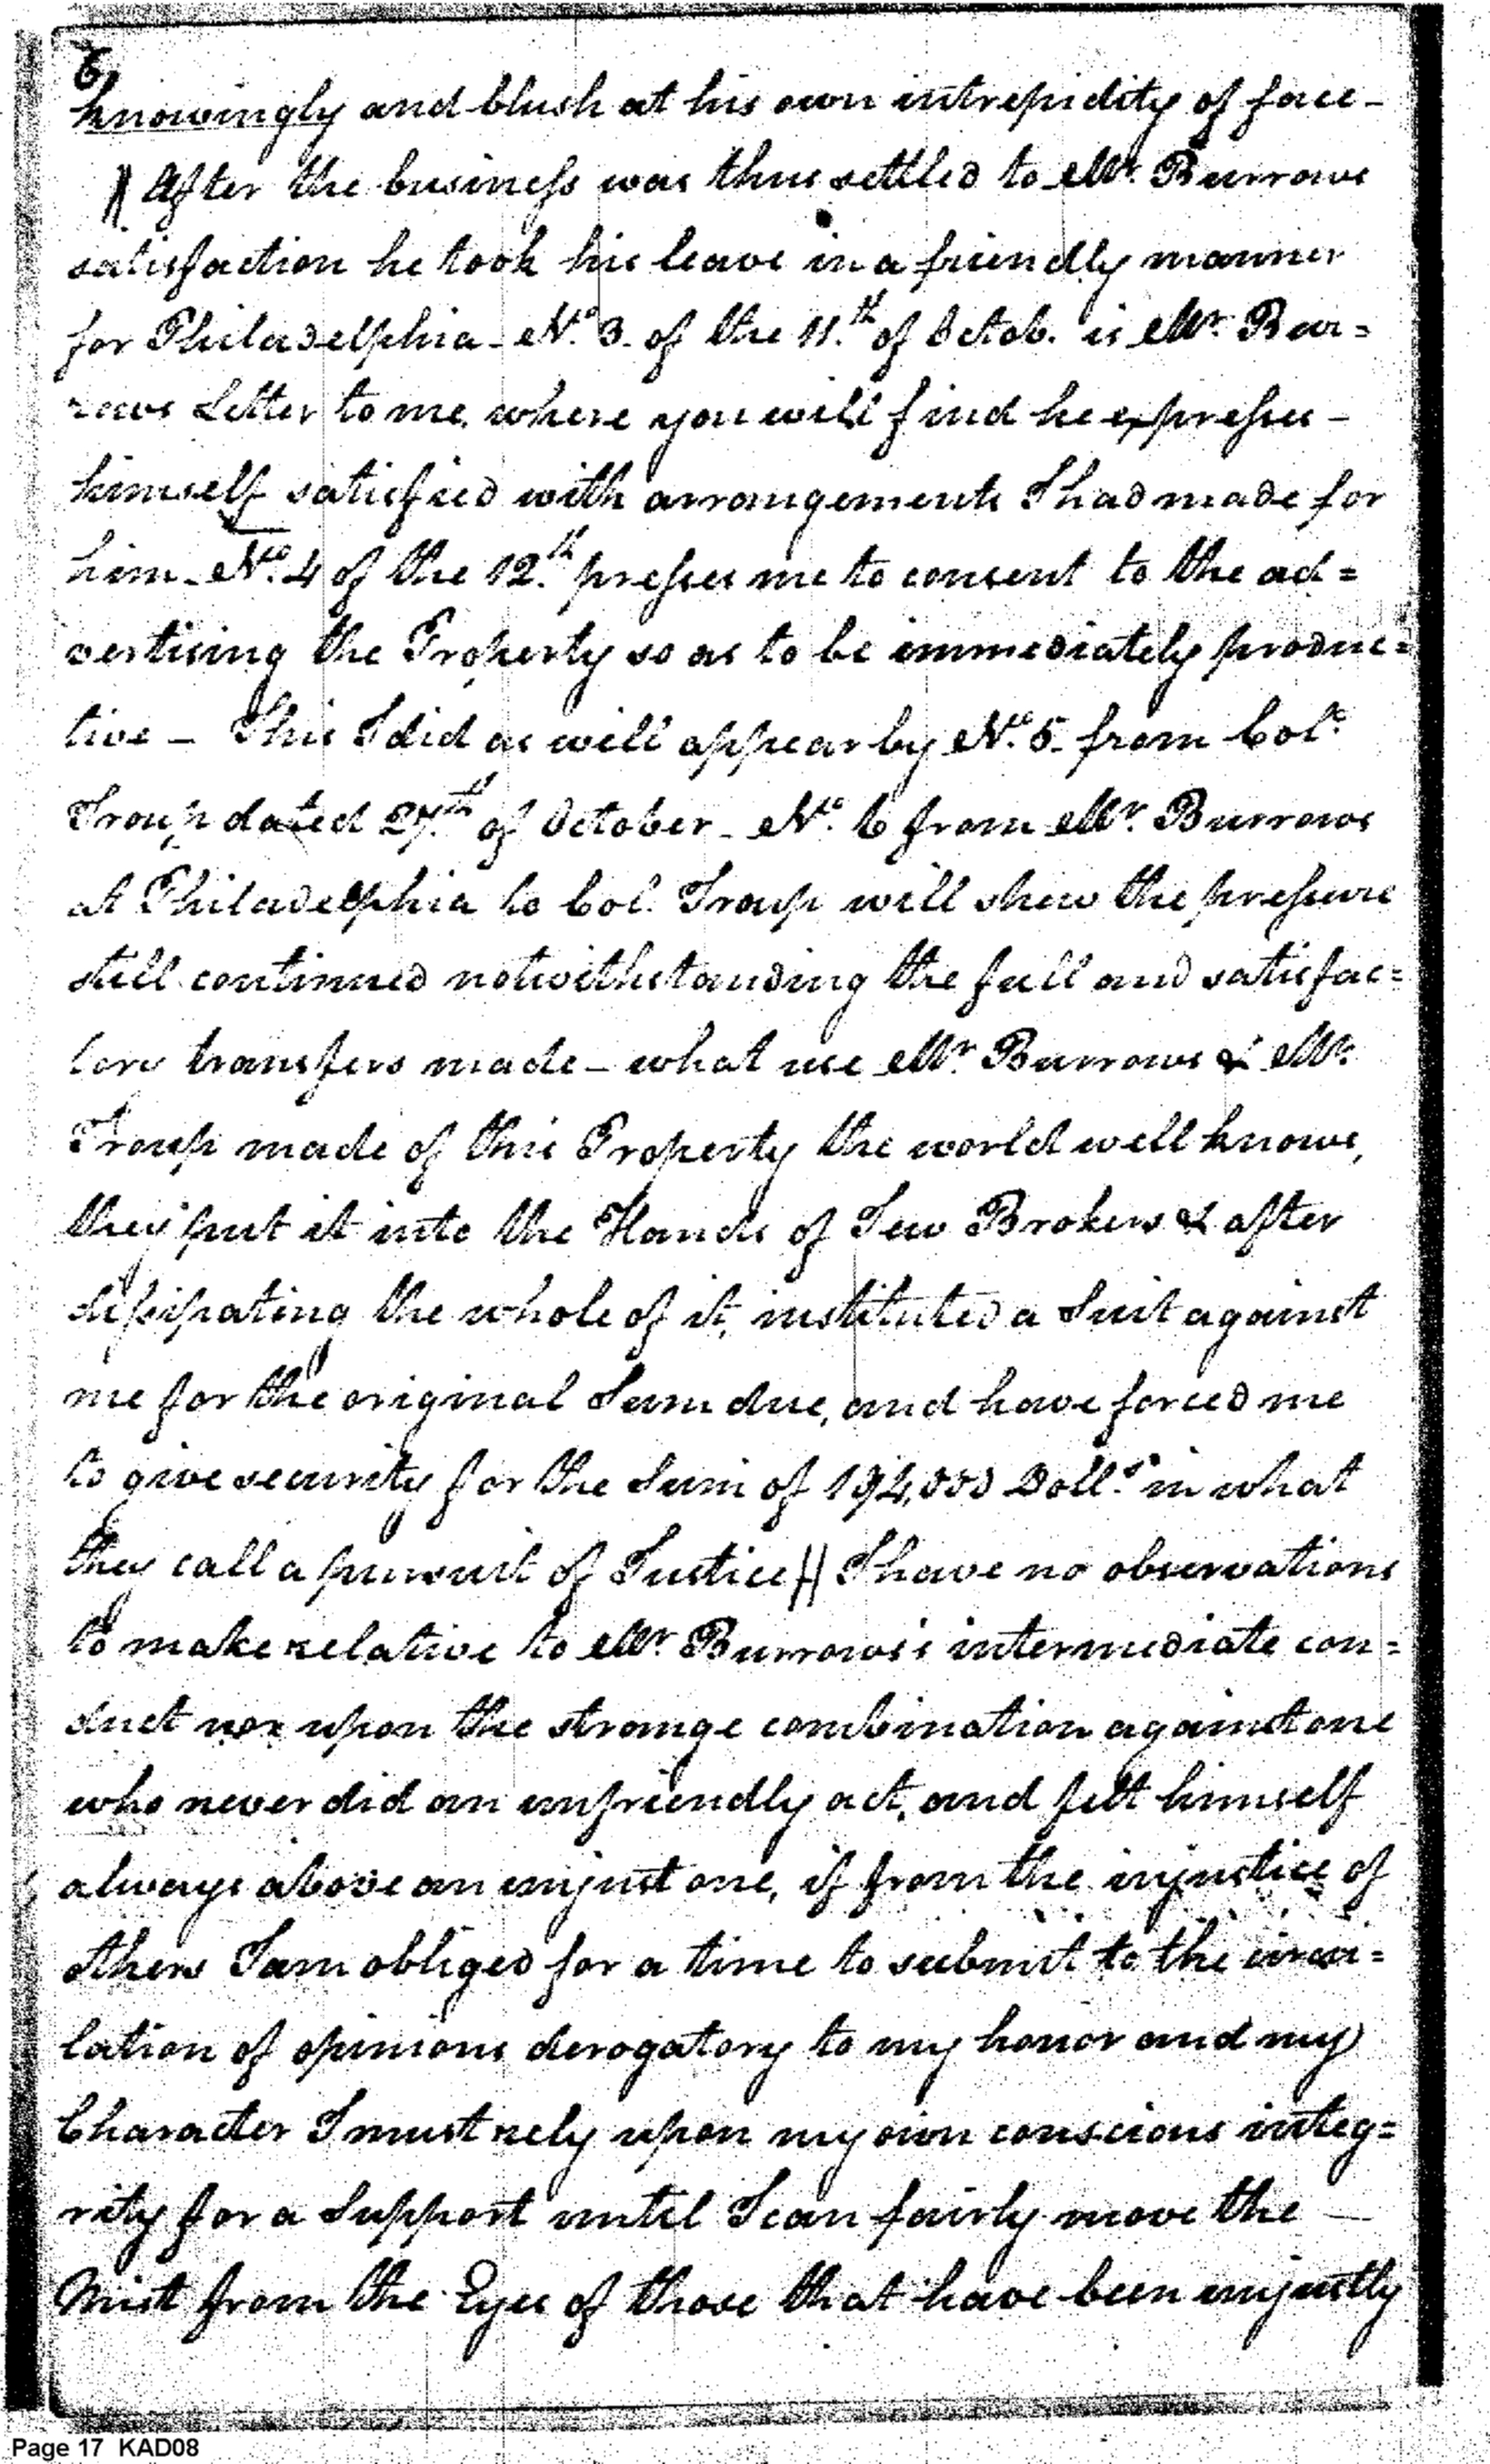 6
knowingly and blush at his own intrepidity of face –
After the business was thus settled to Mr. Burrows
satisfaction he took his leave in a friendly manner
for Philadelphia – No. 3. of the 11.th of Octob. is Mr. Bur=
rows Letter to me, where you will find he expresses –
himself satisfied with arrangements I had made for
him – No. 4 of the 12.th presses me to consent to the ad=
vertising the Property so as to be immediately produc=
tive – This I did as will appear by No. 5. from Col.
Troup dated 27.th of October – No. 6 from Mr. Burrows
at Philadelphia to Col. Troup will shew the pressure
still continued notwithstanding the full and satisfac=
tory transfers made – what use Mr. Burrows & Mr.
Troup made of this Property the world well knows,
they put it into the Hands of Jew Brokers & after
dissipating the whole of it, instituted a Suit against
me for the original Sum due, and have forced me
to give security for the Sum of 194,000 Doll.s in what
they call a pursuit of Justice // I have no observations
to make relative to Mr. Burrows's intermediate con=
duct nor upon the strange combination against one
who never did an unfriendly act, and felt himself
always above an unjust one, if from the injustice of
others I am obliged for a time to submit to the circu=
lation of opinions derogatory to my honor and my
Character I must rely upon my own conscious integ=
rity for a Support until I can fairly move the –
Mist from the Eyes of those that have been unjustly
Page 17 KAD08